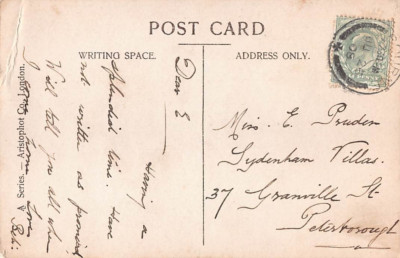 POST CARD
WRITING SPACE.
ADDRESS ONLY.
Dear E
Having a
splendid time. Have
not written as promised
Will tell you all when
I come home Love
Miss. E. Pruden
Sydenham Villas.
37 Granville St.
Peterborough
Series. — Aristophot Co., London.